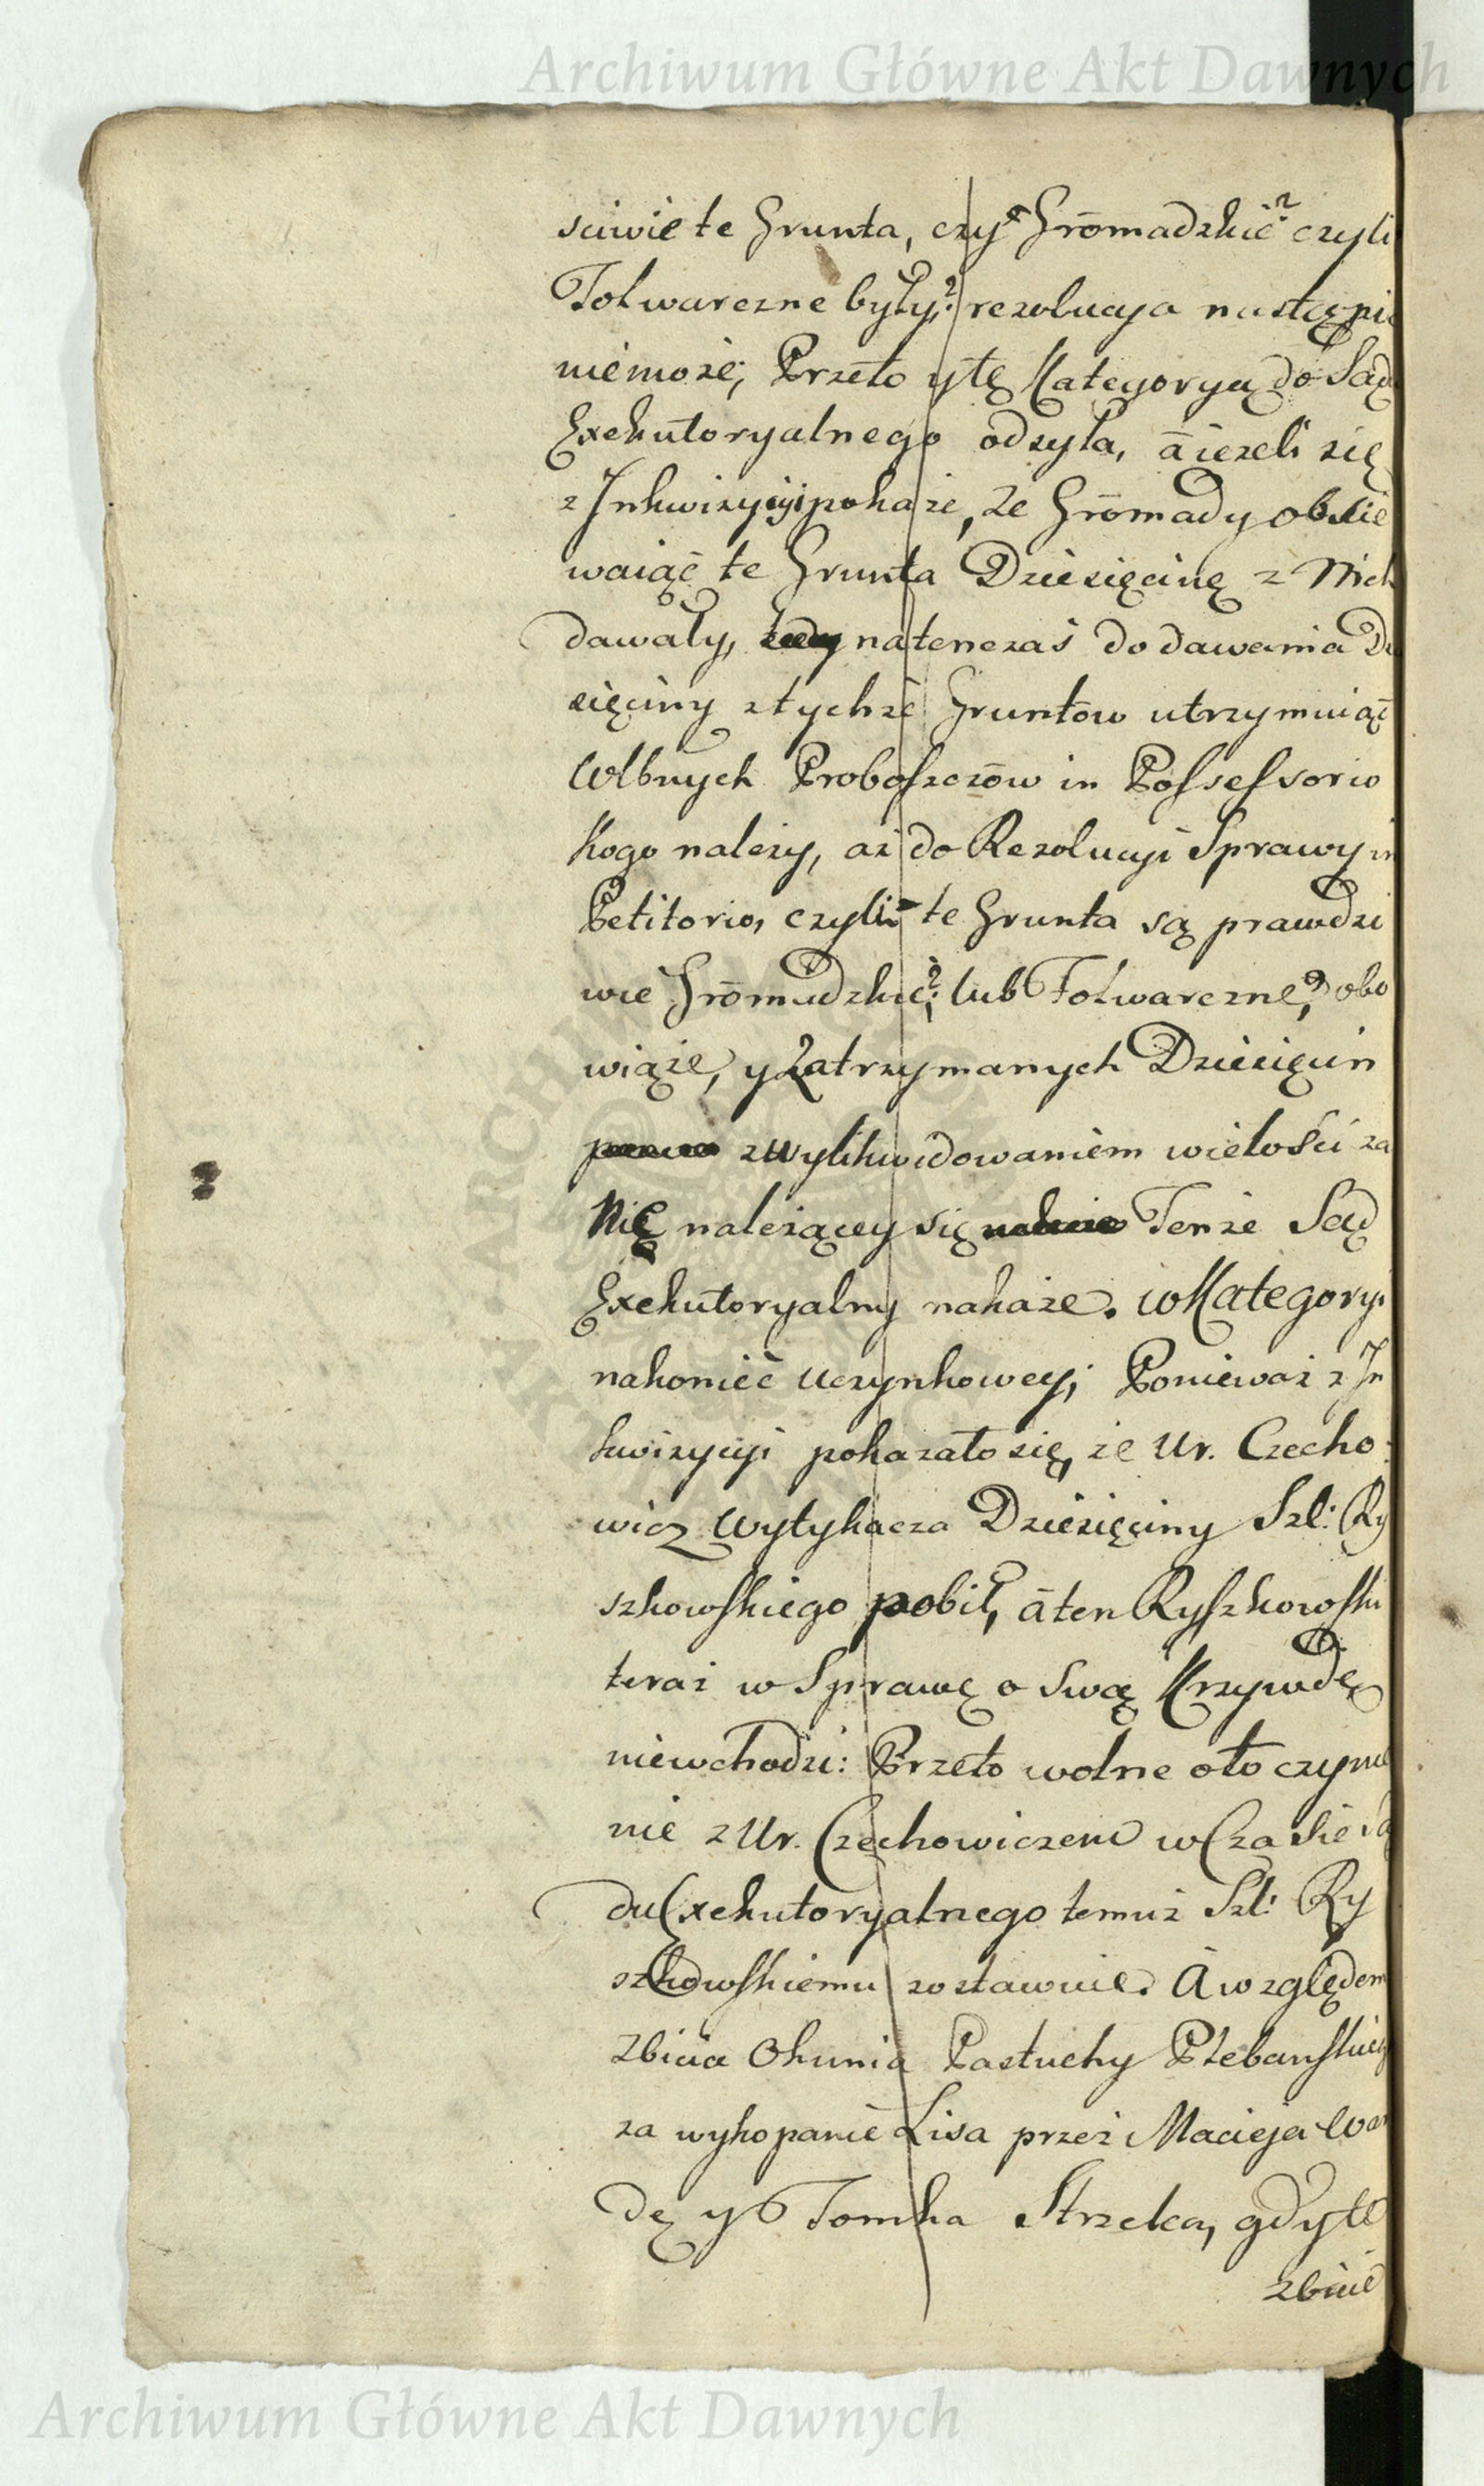 Archiwum Główne Akt Dawnych
sciwie te Grunta, czy Gromadzkie? czyli
Folwarczne były? rezolucya nastąpić
niemoże; Przeto y tę Kategoryą do Sąd
Exekutoryalnego odsyła, á ieżeli się
z Inkwizycyi pokaże, że Gromady obsie
waiąc te Grunta Dziesięcinę z Nich
dawały, natenczas do dawania Dzi
sięciny z tychże Gruntow utrzymuiąc
Wlbnych Proboszczów in Possessorio
Kogo należy, aż do Rezolucyi Sprawy in
Petitorio, czyli te Grunta są prawdzi
wie Gromadzkie?; lub Folwarczne?, obo
wiąże, y Zatrzymanych Dziesięcin
z wylikwidowaniem wielości za
Nię należącey się Tenże Sąd
Exekutoryalny nakaże. w Kategoryi
nakoniec Uczynkowey; Ponieważ z In
kwizycyi pokazało się, że Ur. Czecho
wicz Wytykacza Dziesięciny Szl: Ry
szkowskiego pobił, á ten Ryszkowski
teraz w Sprawę o Swą Krzywdę
niewchodzi: Przeto wolne oto czynie
nie z Ur. Czechowiczem w Czasie Są
du Exekutoryalnego temuż Szl: Ry
szkowskiemu zostawuie. A względem
Zbicia Okunia Pastuchy Plebanskiey
za wykopanie Lisa przez Macieja Wan
dę y Tomka Strzelca, gdy te
zbicie
ARCHIWUM
Archiwum Główne Akt Dawnych